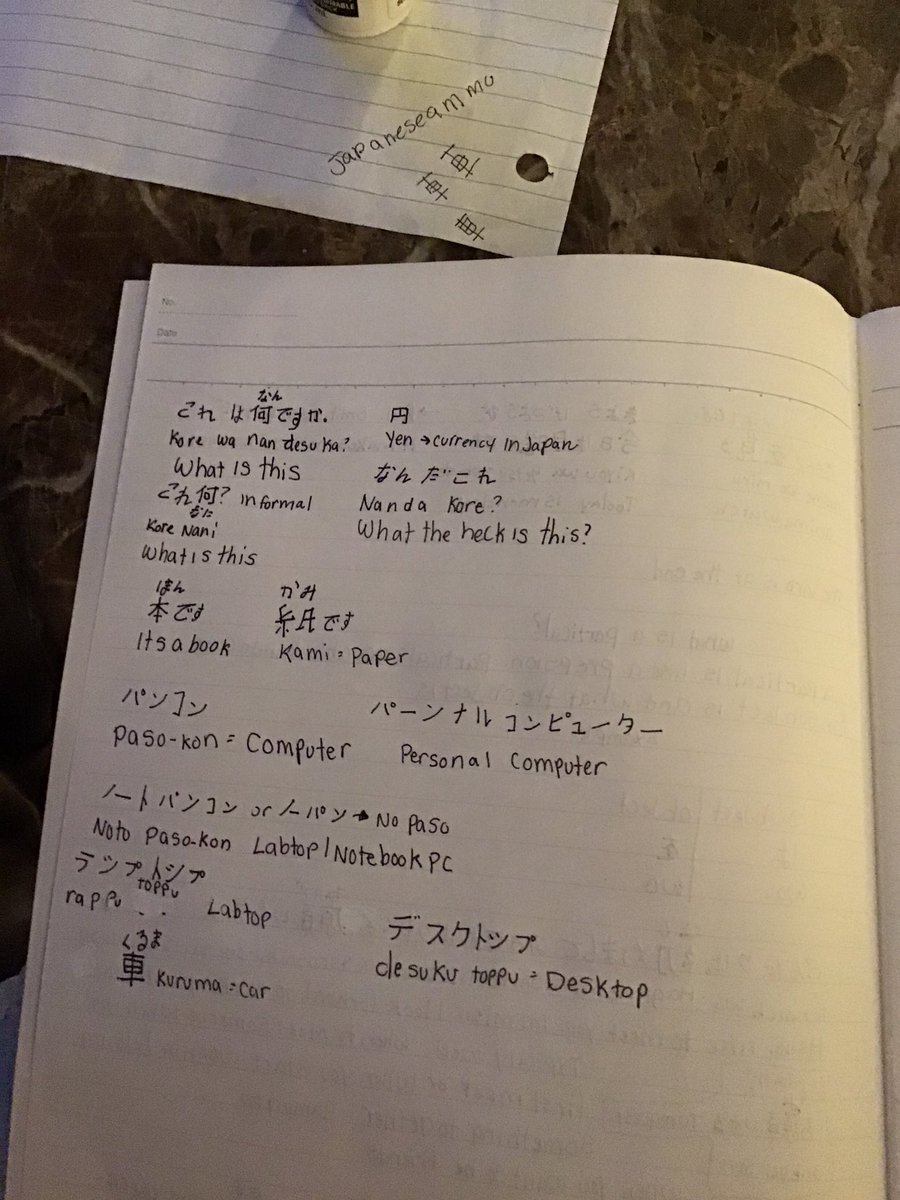 Japaneseammo
車
車
車
No.
Date
なん
これは何ですか。
Kore wa nan desuka?
What is this
これ何? informal
なに
Kore Nani
What is this
円
Yen → currency in Japan
なんだこれ
Nanda Kore?
What the heck is this?
ほん
本です
Its a book
かみ
紙です
Kami = Paper
パソコン
Paso-kon = Computer
パーソナルコンピューター
Personal Computer
ノートパソコン or ノーパソ → No Paso
Noto Paso-kon Labtop/Notebook PC
ラップトップ
rappu toppu Labtop
デスクトップ
desuku toppu = Desktop
くるま
車 Kuruma = car